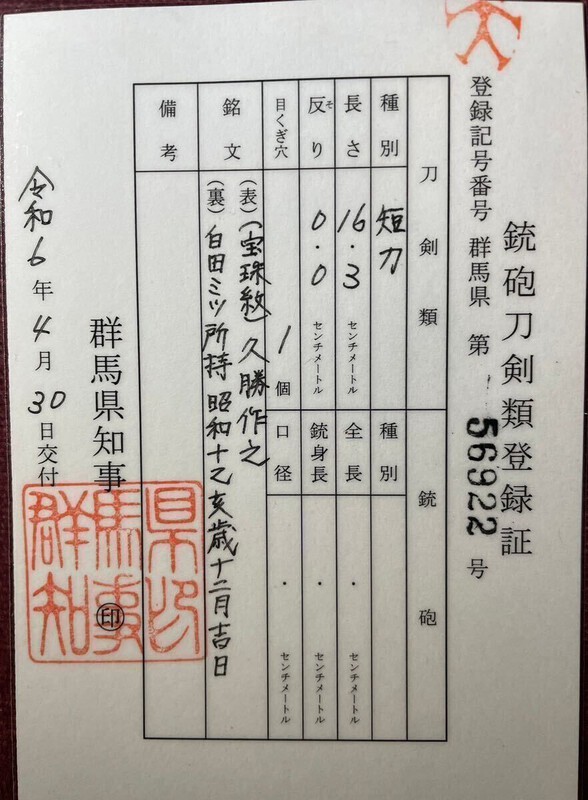 銃砲刀剣類登録証
登録記号番号 群馬県 第 56922 号
刀剣類
銃砲
種別 短刀
種別
長さ 16.3 センチメートル
全長 . センチメートル
反り 0.0 センチメートル
そ
銃身長 . センチメートル
目くぎ穴 1 個
口径 . センチメートル
銘文 (表)(宝珠紋)久勝作之
(裏)白田ミツ所持 昭和十乙亥歳十二月吉日
備考
群馬県知事 印
群馬県知事印
令和6年4月30日交付